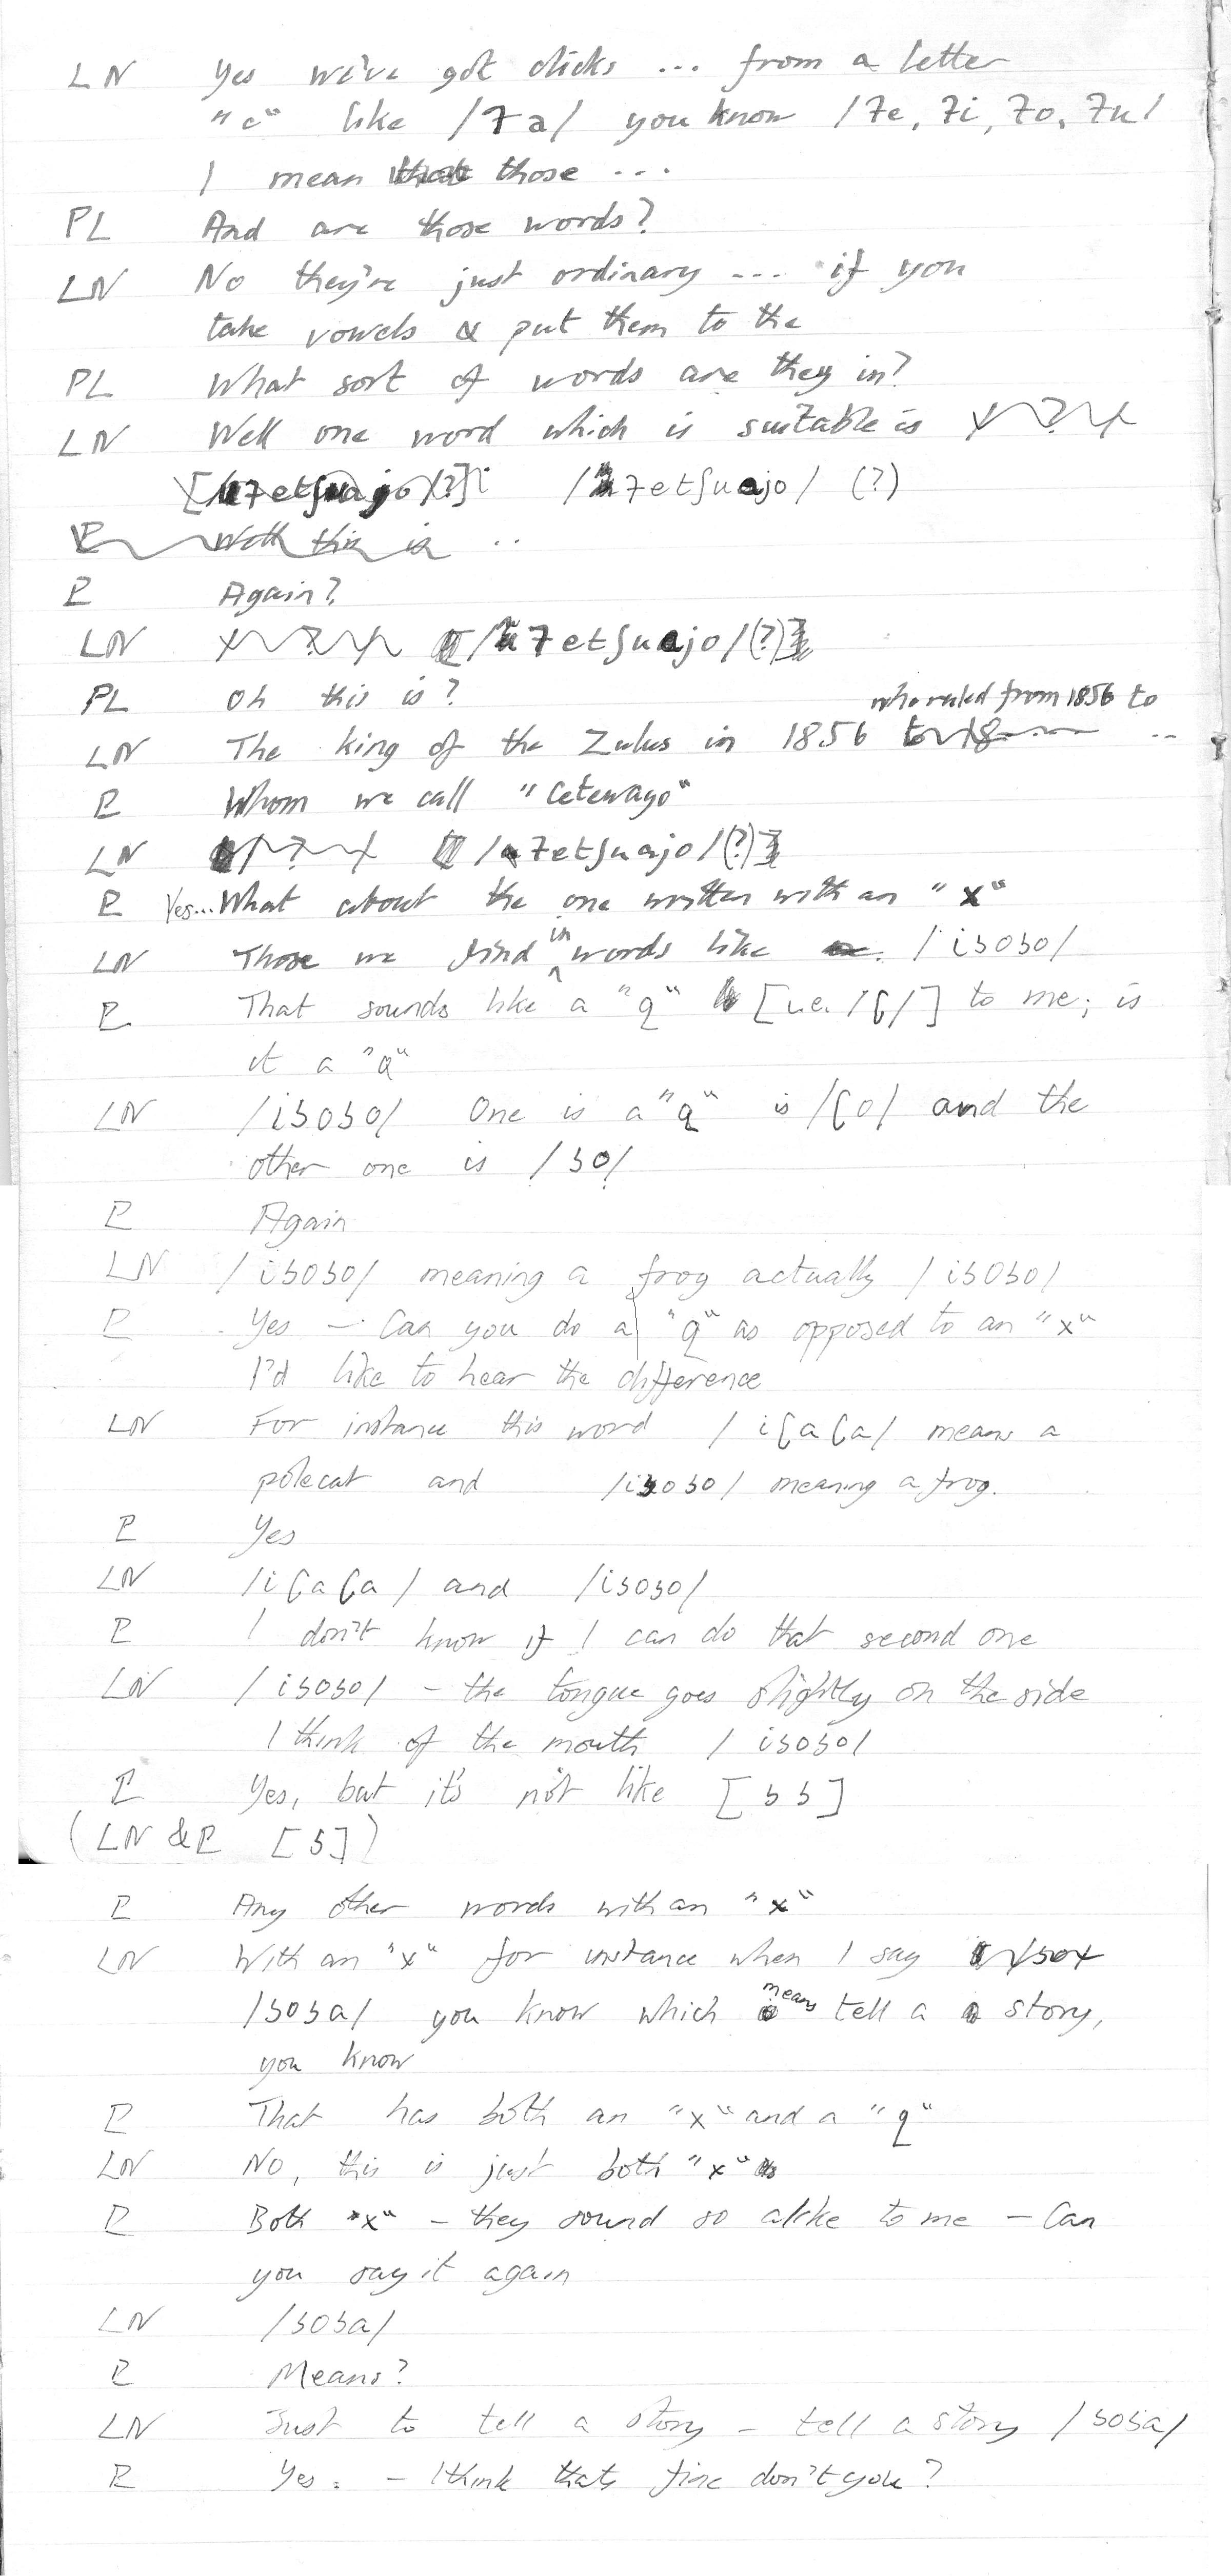 LN Yes we've got clicks ... from a letter
"c" like /ʇa/ you know /ʇe, ʇi, ʇo, ʇu/
I mean that those ...
PL And are those words?
LN No they're just ordinary ... if you
take vowels & put them to the
PL What sort of words are they in?
LN Well one word which is suitable is
/ʇetʃuajo/ (?)
P Well this is ..
P Again?
LN /ʇetʃuajo/ (?)
PL Oh this is?
who ruled from 1856 to
LN The king of the Zulus in 1856 ..
P Whom we call "Cetewayo"
LN /ʇetʃuajo/ (?)
P Yes... What about the one written with an "x"
LN Those we find in words like /iʖoʖo/
P That sounds like a "q" [i.e. /ʗ/] to me; is
it a "q"
LN /iʖoʖo/ One is a "q" is /ʗo/ and the
other one is /ʖo/
P Again
LN /iʖoʖo/ meaning a frog actually /iʖoʖo/
P Yes – Can you do a "q" as opposed to an "x"
I'd like to hear the difference
LN For instance this word /iʗaʗa/ means a
polecat and /iʖoʖo/ meaning a frog.
P Yes
LN /iʗaʗa/ and /iʖoʖo/
P I don't know if I can do that second one
LN /iʖoʖo/ – the tongue goes slightly on the side
I think of the mouth /iʖoʖo/
P Yes, but it's not like [ʖʖ]
(LN & P [ʖ])
P Any other words with an "x"
LN With an "x" for instance when I say
/ʖoʖa/ you know which means tell a story,
you know
P That has both an "x" and a "q"
LN No, this is just both "x"
P Both "x" – they sound so alike to me – Can
you say it again
LN /ʖoʖa/
P Means?
LN Just to tell a story – tell a story /ʖoʖa/
P Yes. – I think thats fine don't you?